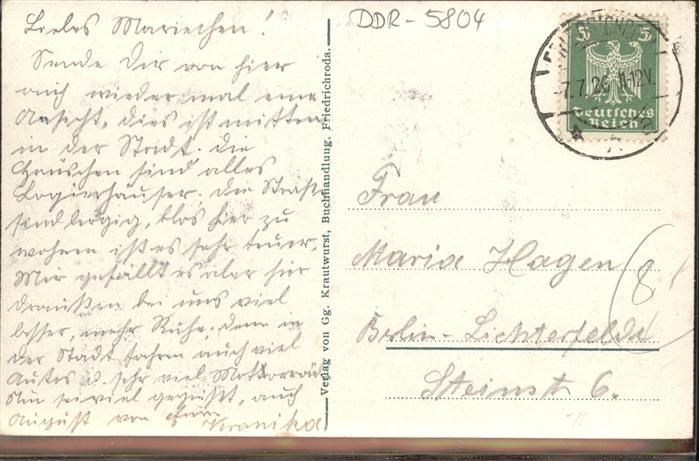 DDR-5804
Liebes Mariechen!
Sende Dir von hier
auch wieder mal eine
Ansicht, dies ist mitten
in der Stadt. Die
Häuschen sind alles
Logierhäuser. Die Straßen
sind bergig, blos hier zu
wohnen ist es sehr teuer.
Mir gefällt es aber hier
draußen bei uns viel
besser, mehr Ruhe, denn in
der Stadt fahren auch viel
Autos u. sehr viel Motorräder
Nun seiviel gegrüßt, auch
August von
Veronika
Verlag von Gg. Krautwurst, Buchhandlung, Friedrichroda.
5 5
Deutsches
Reich
7.7.26 11-12V.
Frau
Maria Hagen
Berlin-Lichterfelde
Steinstr 6.
8